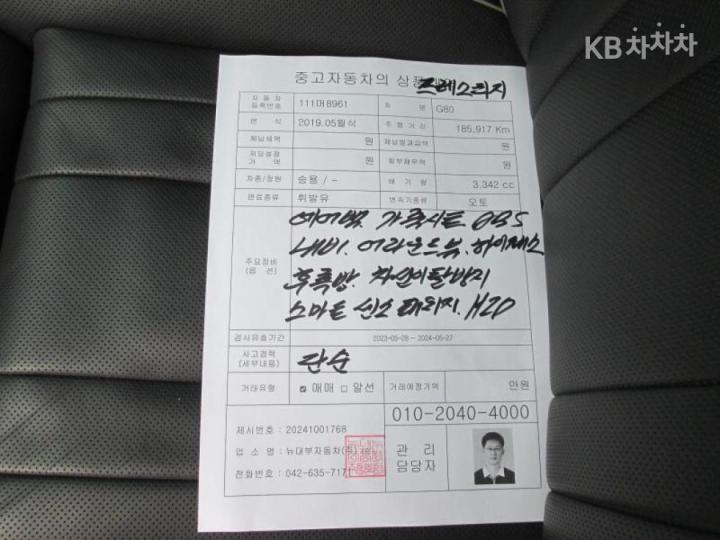 KB차차차
중고자동차의 상품
프레스티지
자동차 등록번호 111더8961 차 명 G80
연 식 2019.05월식 주행거리 185,917 Km
체납세액 원 체납범과금액 원
저당설정 가 액 원 할부채무액 원
차종/정원 승용 / - 배 기 량 3,342 cc
연료종류 휘발유 변속기종류 오토
주요장비 (옵 션)
에어백. 가죽시트 ABS
내비. 어라운드뷰. 하이패스
후측방. 차선이탈방지
스마트
H2D
검사유효기간 2023-05-28 ~ 2024-05-27
사고경력 (세부내용) 단순
거래유형 ☑ 매매 □ 알선 거래예정가액 만원
010-2040-4000
제시번호 : 20241001768
업 소 명 : 뉴대부자동차(주)
전화번호 : 042-635-717
관 리 담당자